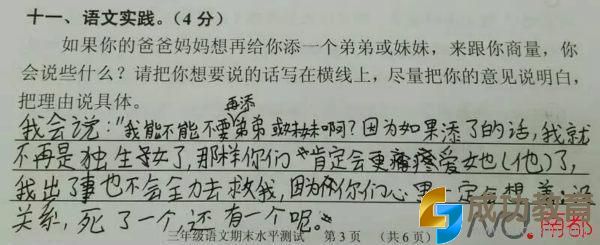 十一、语文实践。（4 分）
如果你的爸爸妈妈想再给你添一个弟弟或妹妹，来跟你商量，你
会说些什么？请把你想要说的话写在横线上，尽量把你的意见说明白，
把理由说具体。
再添
我会说："我能不能不要弟弟或妹妹啊？因为如果添了的话，我就
不再是独生子女了，那样你们肯定会更疼爱她（他）了，
我出了事也不会全力去救我，因为你们心里一定会想着：没
关系，死了一个，还有一个呢。"
三年级语文期末水平测试 第 3 页 （共 6 页）
成功教育
南都